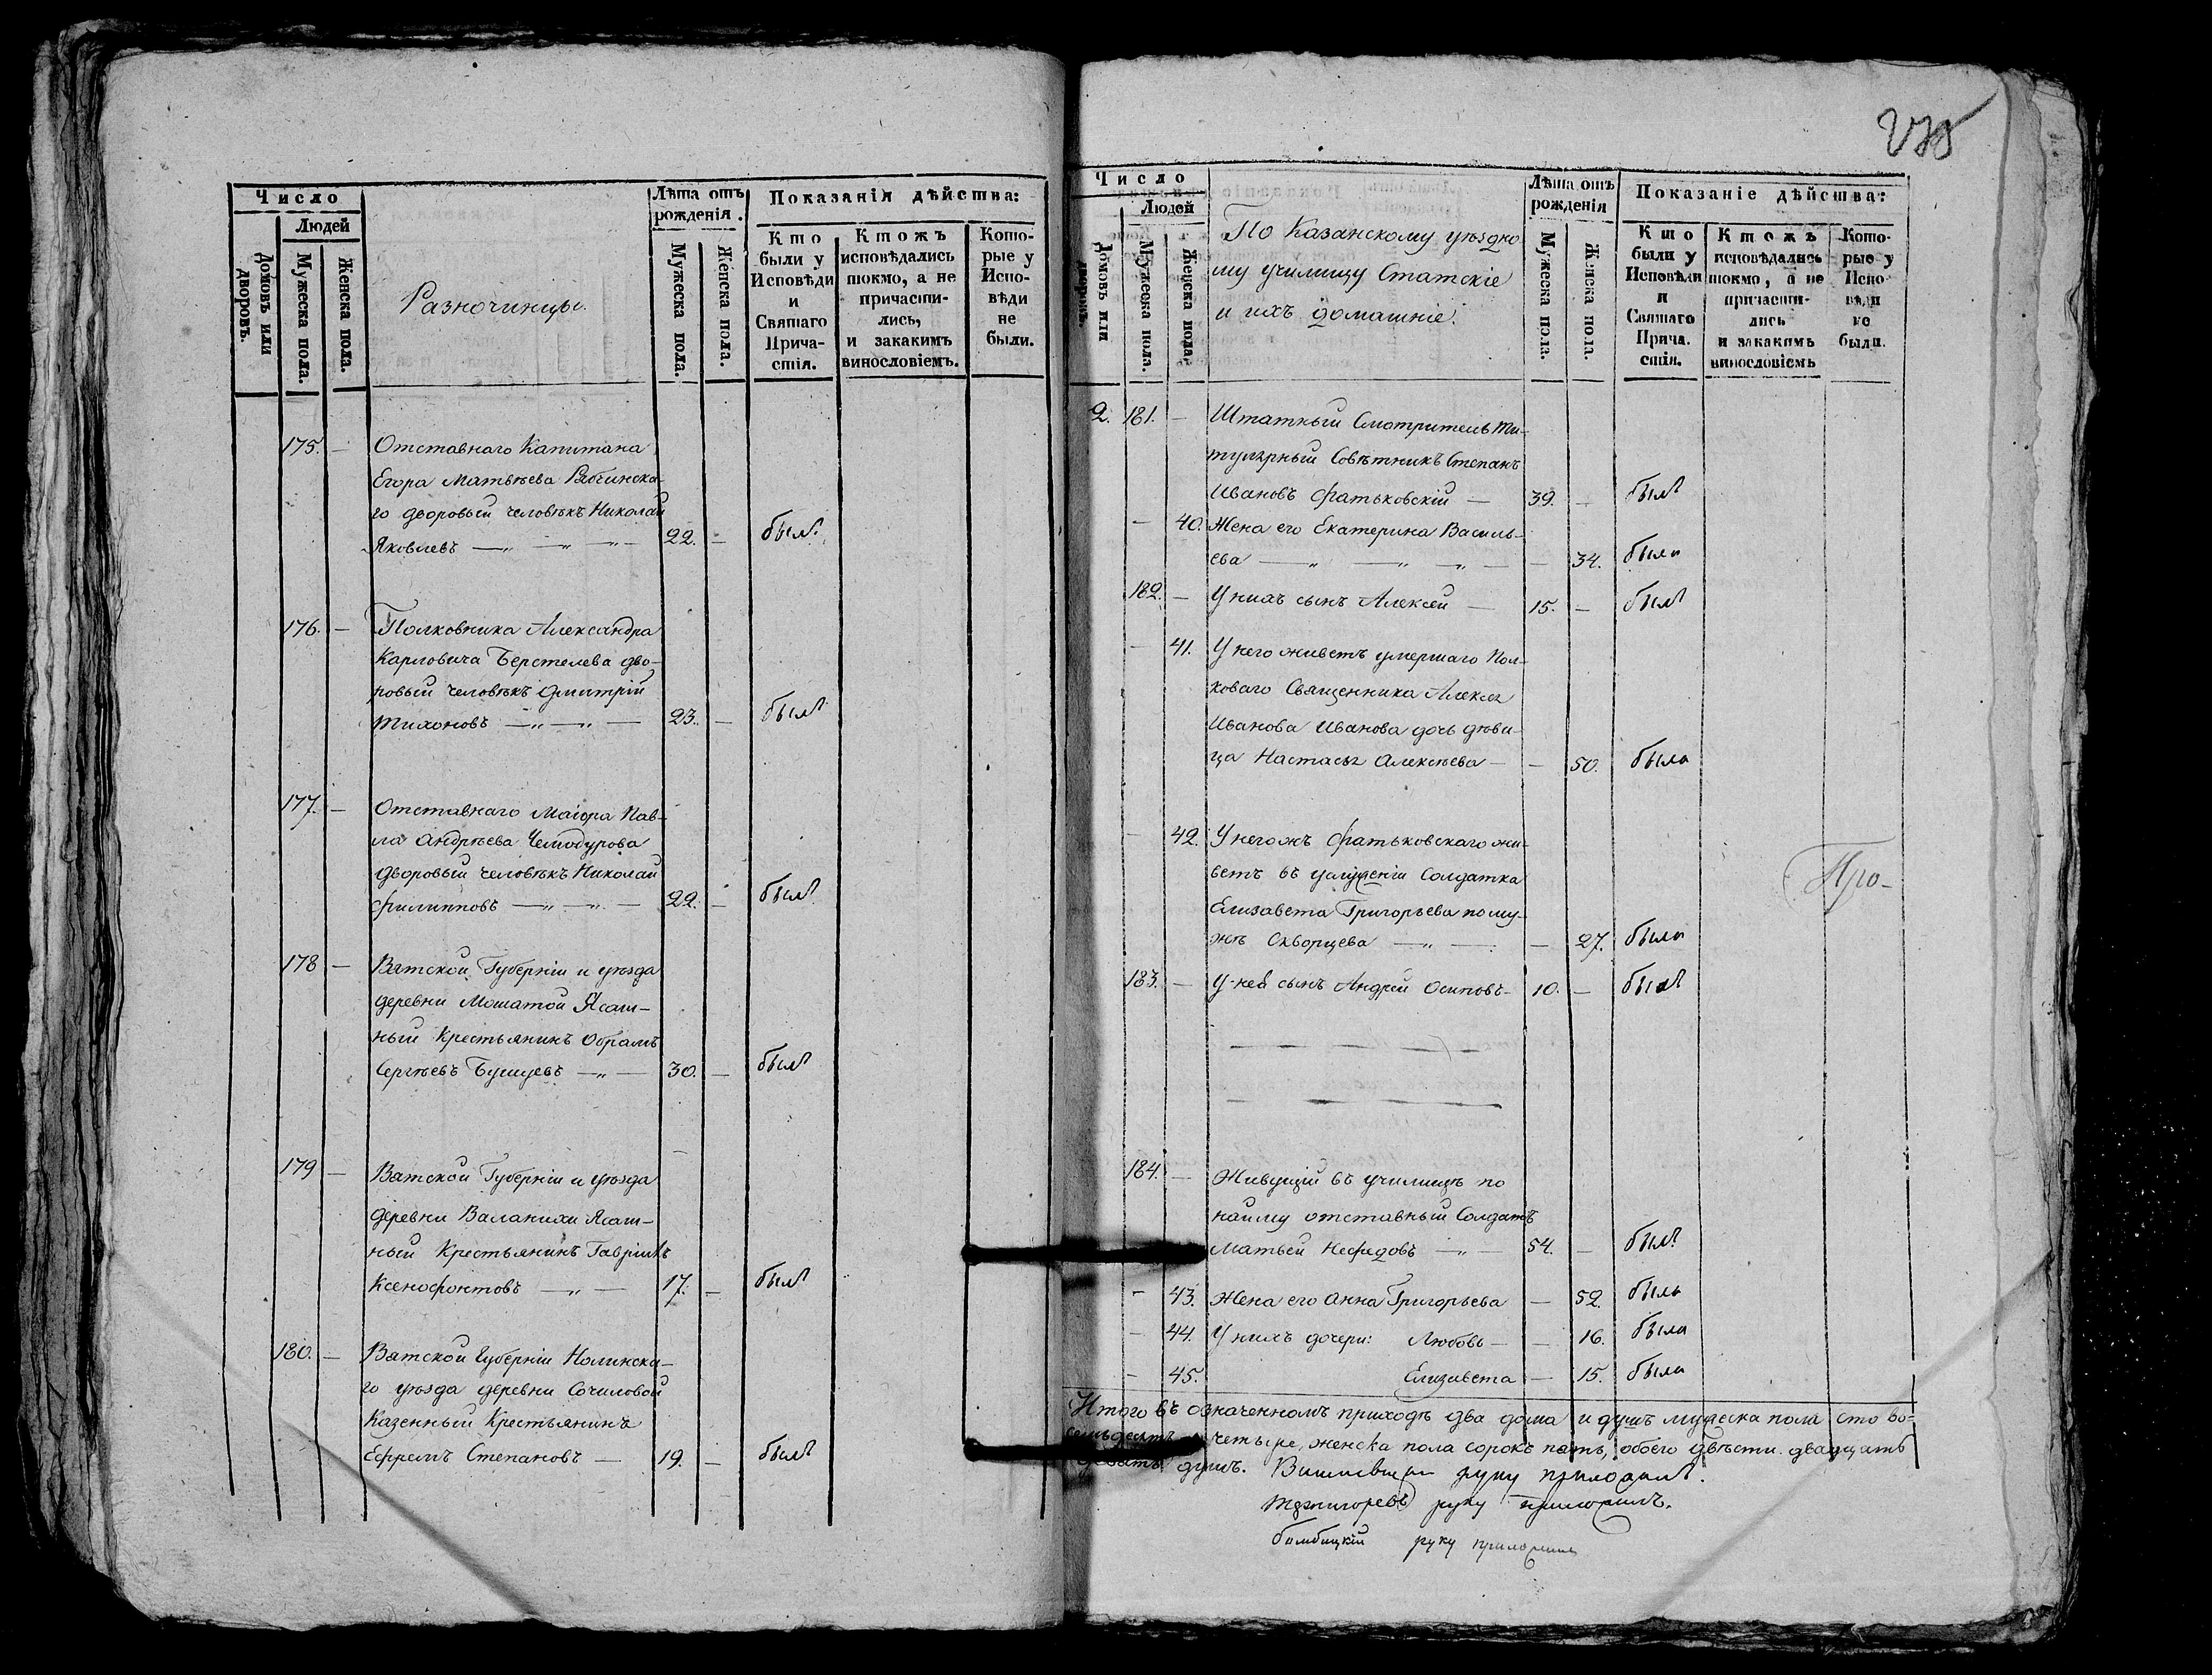 Число
Людей
Домовъ или дворовъ.
Мужеска пола.
Женска пола.
Разночинцы.
Лѣта отъ рожденія.
Мужеска пола.
Женска пола.
Показанія дѣйства:
Кто были у Исповѣди и Святаго Прича-стія.
Ктожъ исповѣдались токмо, а не причасти-лись, и закакимъ винословіемъ.
Кото-рые у Испо-вѣди не были.
175. — Отставнаго Капитана
Егора Матвѣева Рябчинска-
го дворовый человѣкъ Николай
Яковлевъ — 22. — былъ
176. — Полковника Александра
Карловича Берстелева дво-
ровый человѣкъ Дмитрій
Тихоновъ — 23. — былъ
177. — Отставнаго Маіора Пав-
ла Андрѣева Чемодурова
дворовый человѣкъ Николай
Филипповъ — 22. — былъ
178 — Вятской Губерніи и уѣзда
деревни Мошатой Ясаш-
ный Крестьянинъ Обрамъ
Сергѣевъ — 30. — былъ
179 — Вятской Губерніи и уѣзда
деревни Валанихи Ясаш-
ный Крестьянинъ Гаврилъ
Ксенофонтовъ — 17. — былъ
180. — Вятской Губерніи Нолинска-
го уѣзда деревни Сочиловой
Казенный Крестьянинъ
Ефремъ Степановъ — 19. — былъ
Число
Людей
Домовъ или дворовъ.
Мужеска пола.
Женска пола.
По Казанскому уѣздно
му училищу Статскіе
и ихъ домашніе.
Лѣта отъ рожденія
Мужеска пола.
Женска пола.
Показаніе дѣйства:
Кто были у Исповѣди и Святаго Прича-стія.
Ктожъ исповѣдались токмо, а не причасти-лись и закакимъ винословіемъ
Кото-рые у Испо-вѣди не были.
2. 181. — Штатный Смотритель Ти-
тулярный Совѣтникъ Степанъ
Ивановъ Фатьковскій — 39. — былъ
— 40. Жена его Екатерина Василь-
ева — — 34. была
182. — У нихъ сынъ Алексей — 15. — былъ
— 41. У него живетъ умершаго Пол-
коваго Священника Алексея
Иванова Иванова дочь дѣви-
ца Настасья Алексѣева — — 50. была
— 42. У негожъ Фатьковскаго жи-
ветъ въ услуженіи Солдатка
Елизавета Григорьева по му-
жѣ Скворцева — — 27. была
Про-
183. — У ней сынъ Андрей Осиповъ — 10. — былъ
184. — Живущій въ училищѣ по
найму отставный Солдатъ
Матвей Нефедовъ — 54. — былъ
— 43. Жена его Анна Григорьева — 52. была
— 44. У нихъ дочери: Любовь — — 16. была
— 45. Елизавета — 15. была
Итого въ означенномъ приходѣ два дома и душъ мужеска пола сто во-
семьдесятъ четыре, женска пола сорокъ пять, обоего двѣсти двадцать
девять душъ. руку приложилъ.
руку приложилъ.
руку приложилъ